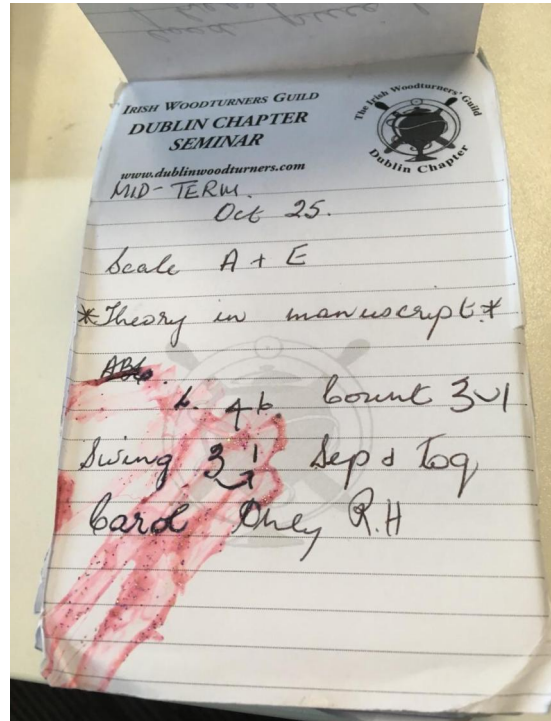 IRISH WOODTURNERS GUILD
DUBLIN CHAPTER
SEMINAR
www.dublinwoodturners.com
The Irish Woodturners' Guild
Dublin Chapter
MID-TERM.
Oct 25.
Scale A + E
*Theory in manuscript.*
b. 4 b. Count 3 1
Swing 3 1 Sep & Tog
Carol Only R.H